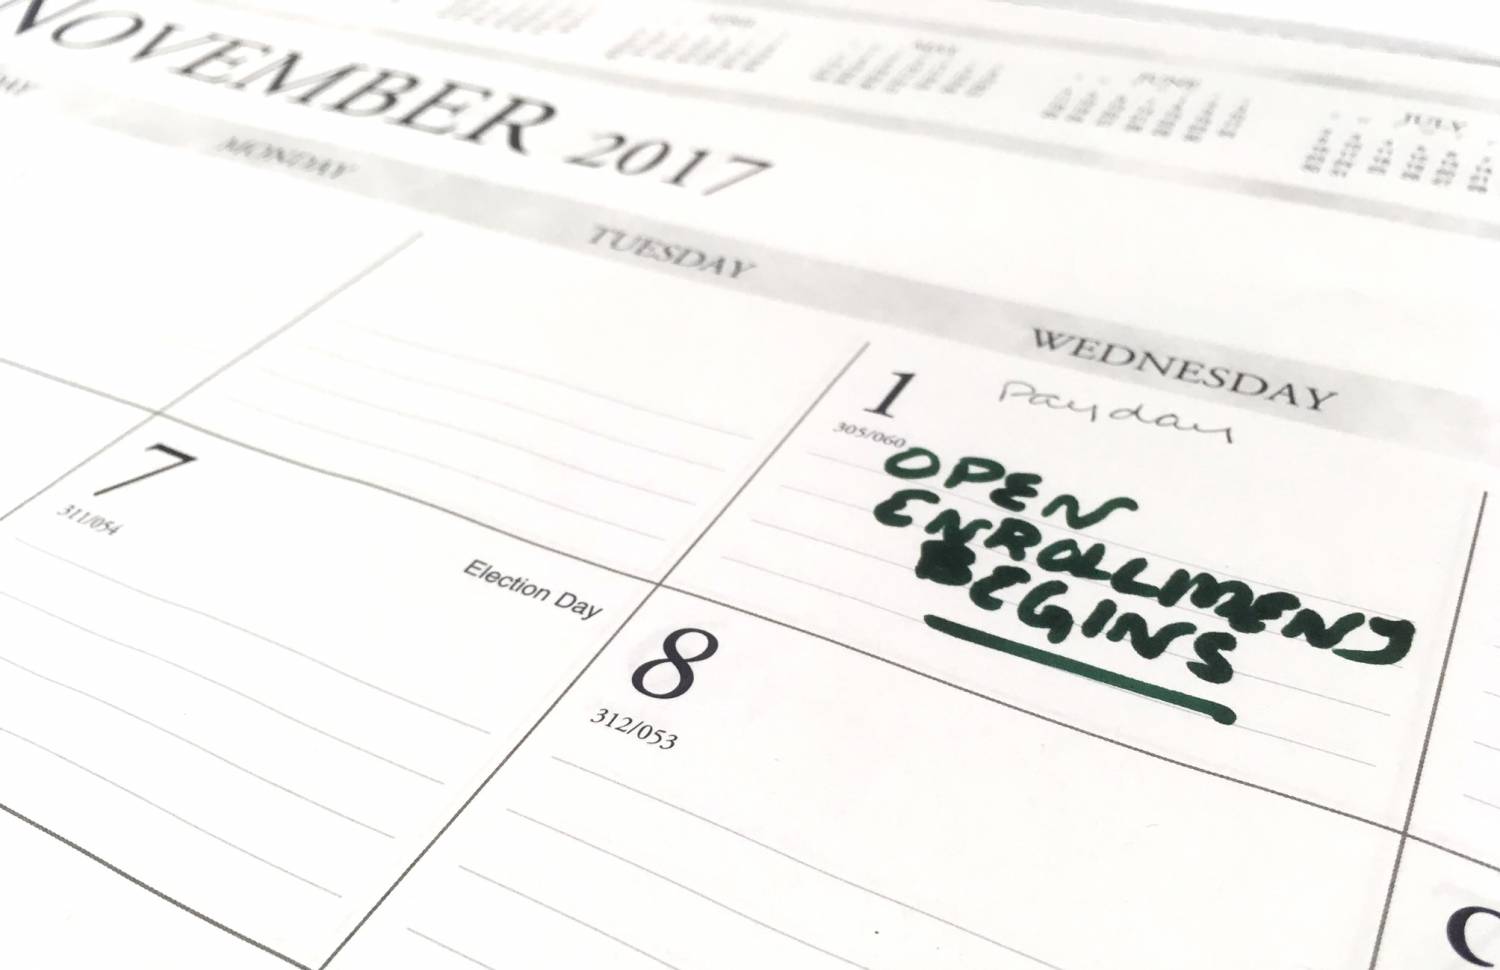 MAY
JUNE
JULY
NOVEMBER 2017
MONDAY
TUESDAY
WEDNESDAY
1
Payday
305/060
OPEN
ENROLLMENT
BEGINS
7
311/054
Election Day
8
312/053